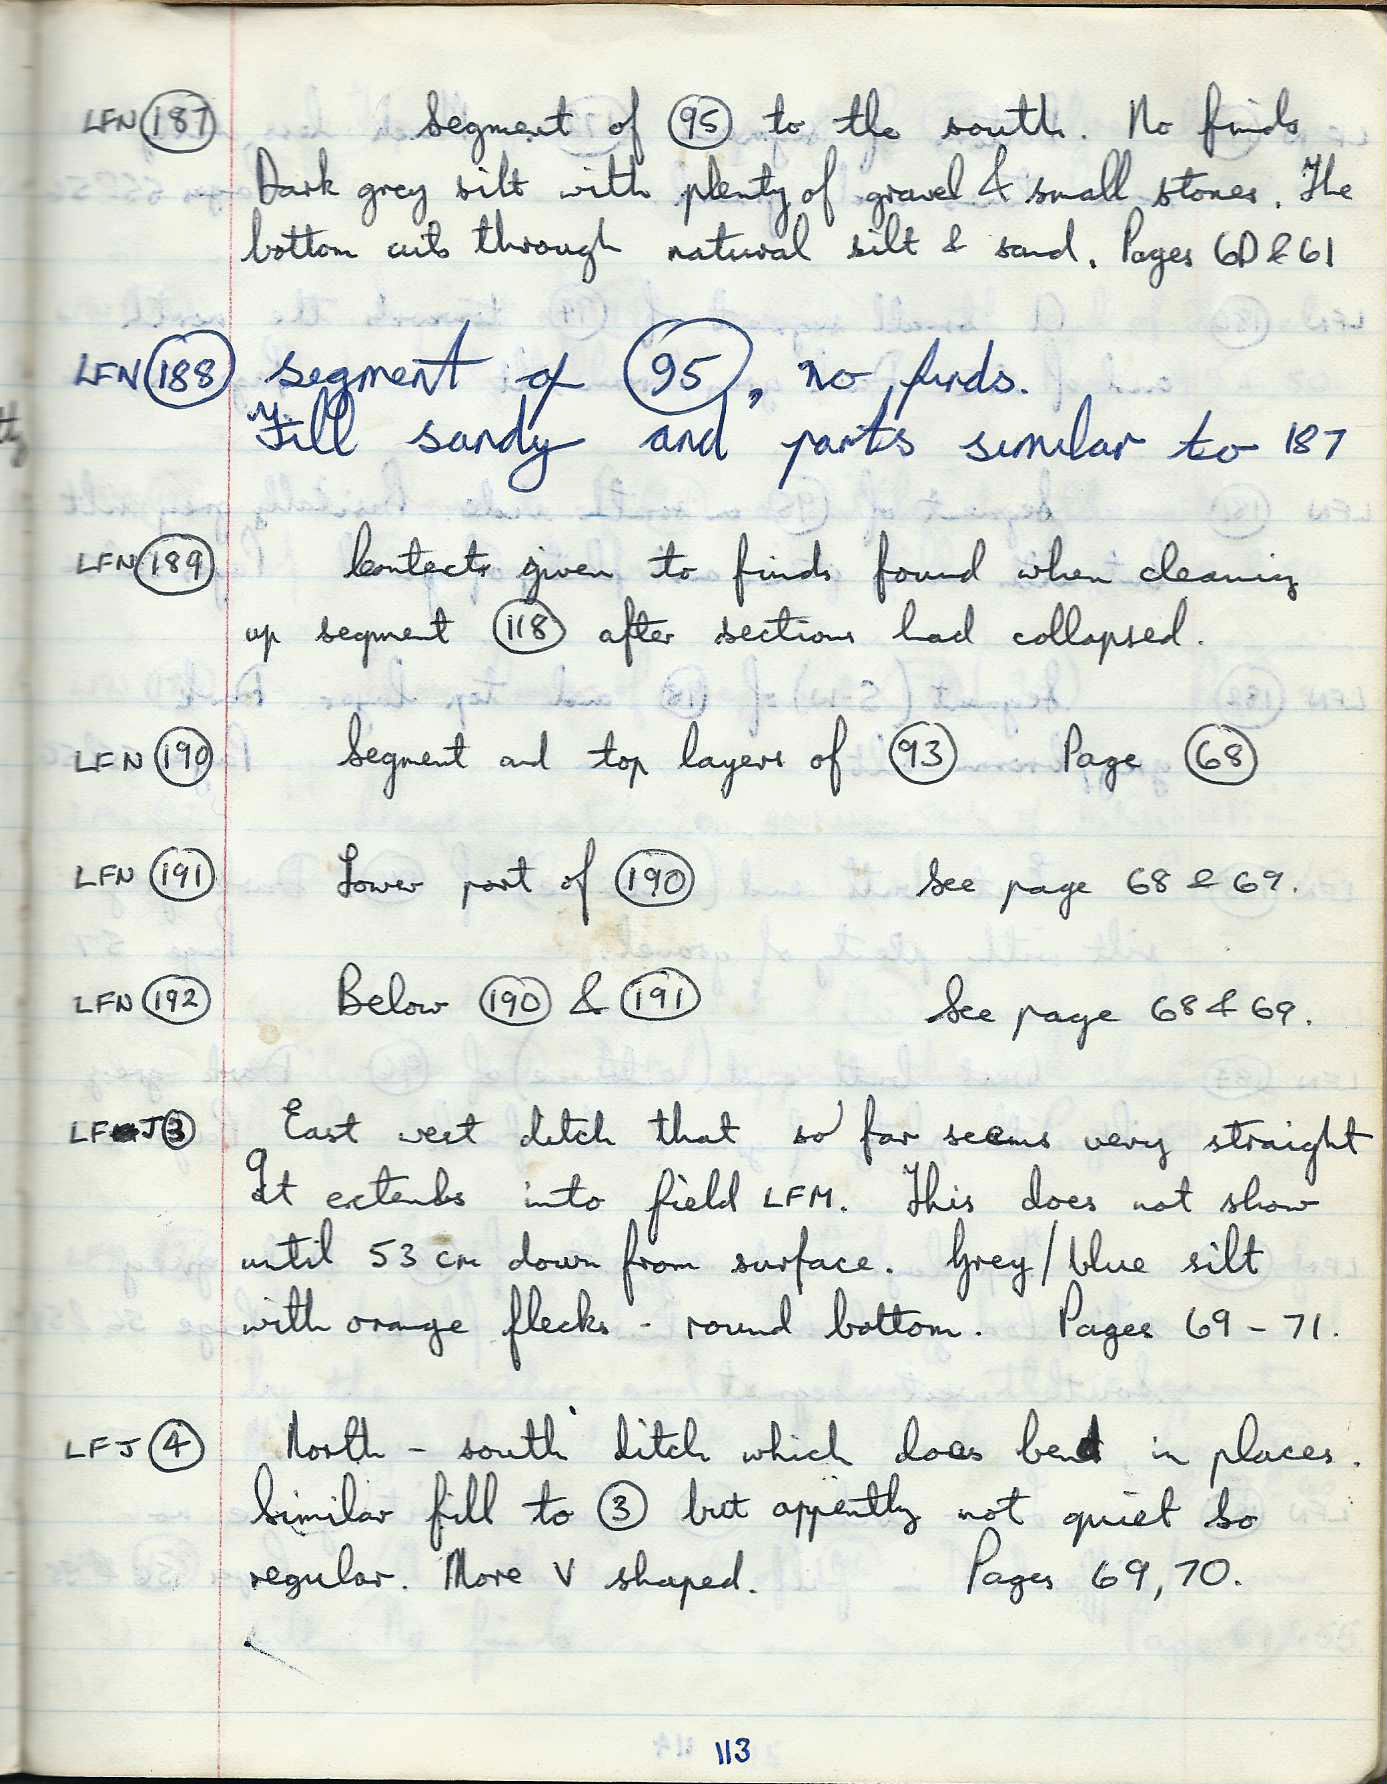 LFN 187 Segment of 95 to the south. No finds
Dark grey silt with plenty of gravel & small stones. The
bottom cuts through natural silt & sand. Pages 60 & 61
LFN 188 segment of 95, no finds.
Fill sandy and parts similar to 187
LFN 189 Contects given to finds found when cleaning
up segment 118 after sections had collapsed.
LFN 190 Segment and top layers of 93 Page 68
LFN 191 Lower part of 190 See page 68 & 69.
LFN 192 Below 190 & 191 See page 68 & 69.
LF J 3 East west ditch that so far seems very straight
It extends into field LFM. This does not show
until 53 cm down from surface. Grey/blue silt
with orange flecks - round bottom. Pages 69 - 71.
LFJ 4 North - south ditch which does bend in places.
Similar fill to 3 but appently not quiet so
regular. More V shaped. Pages 69, 70.
113